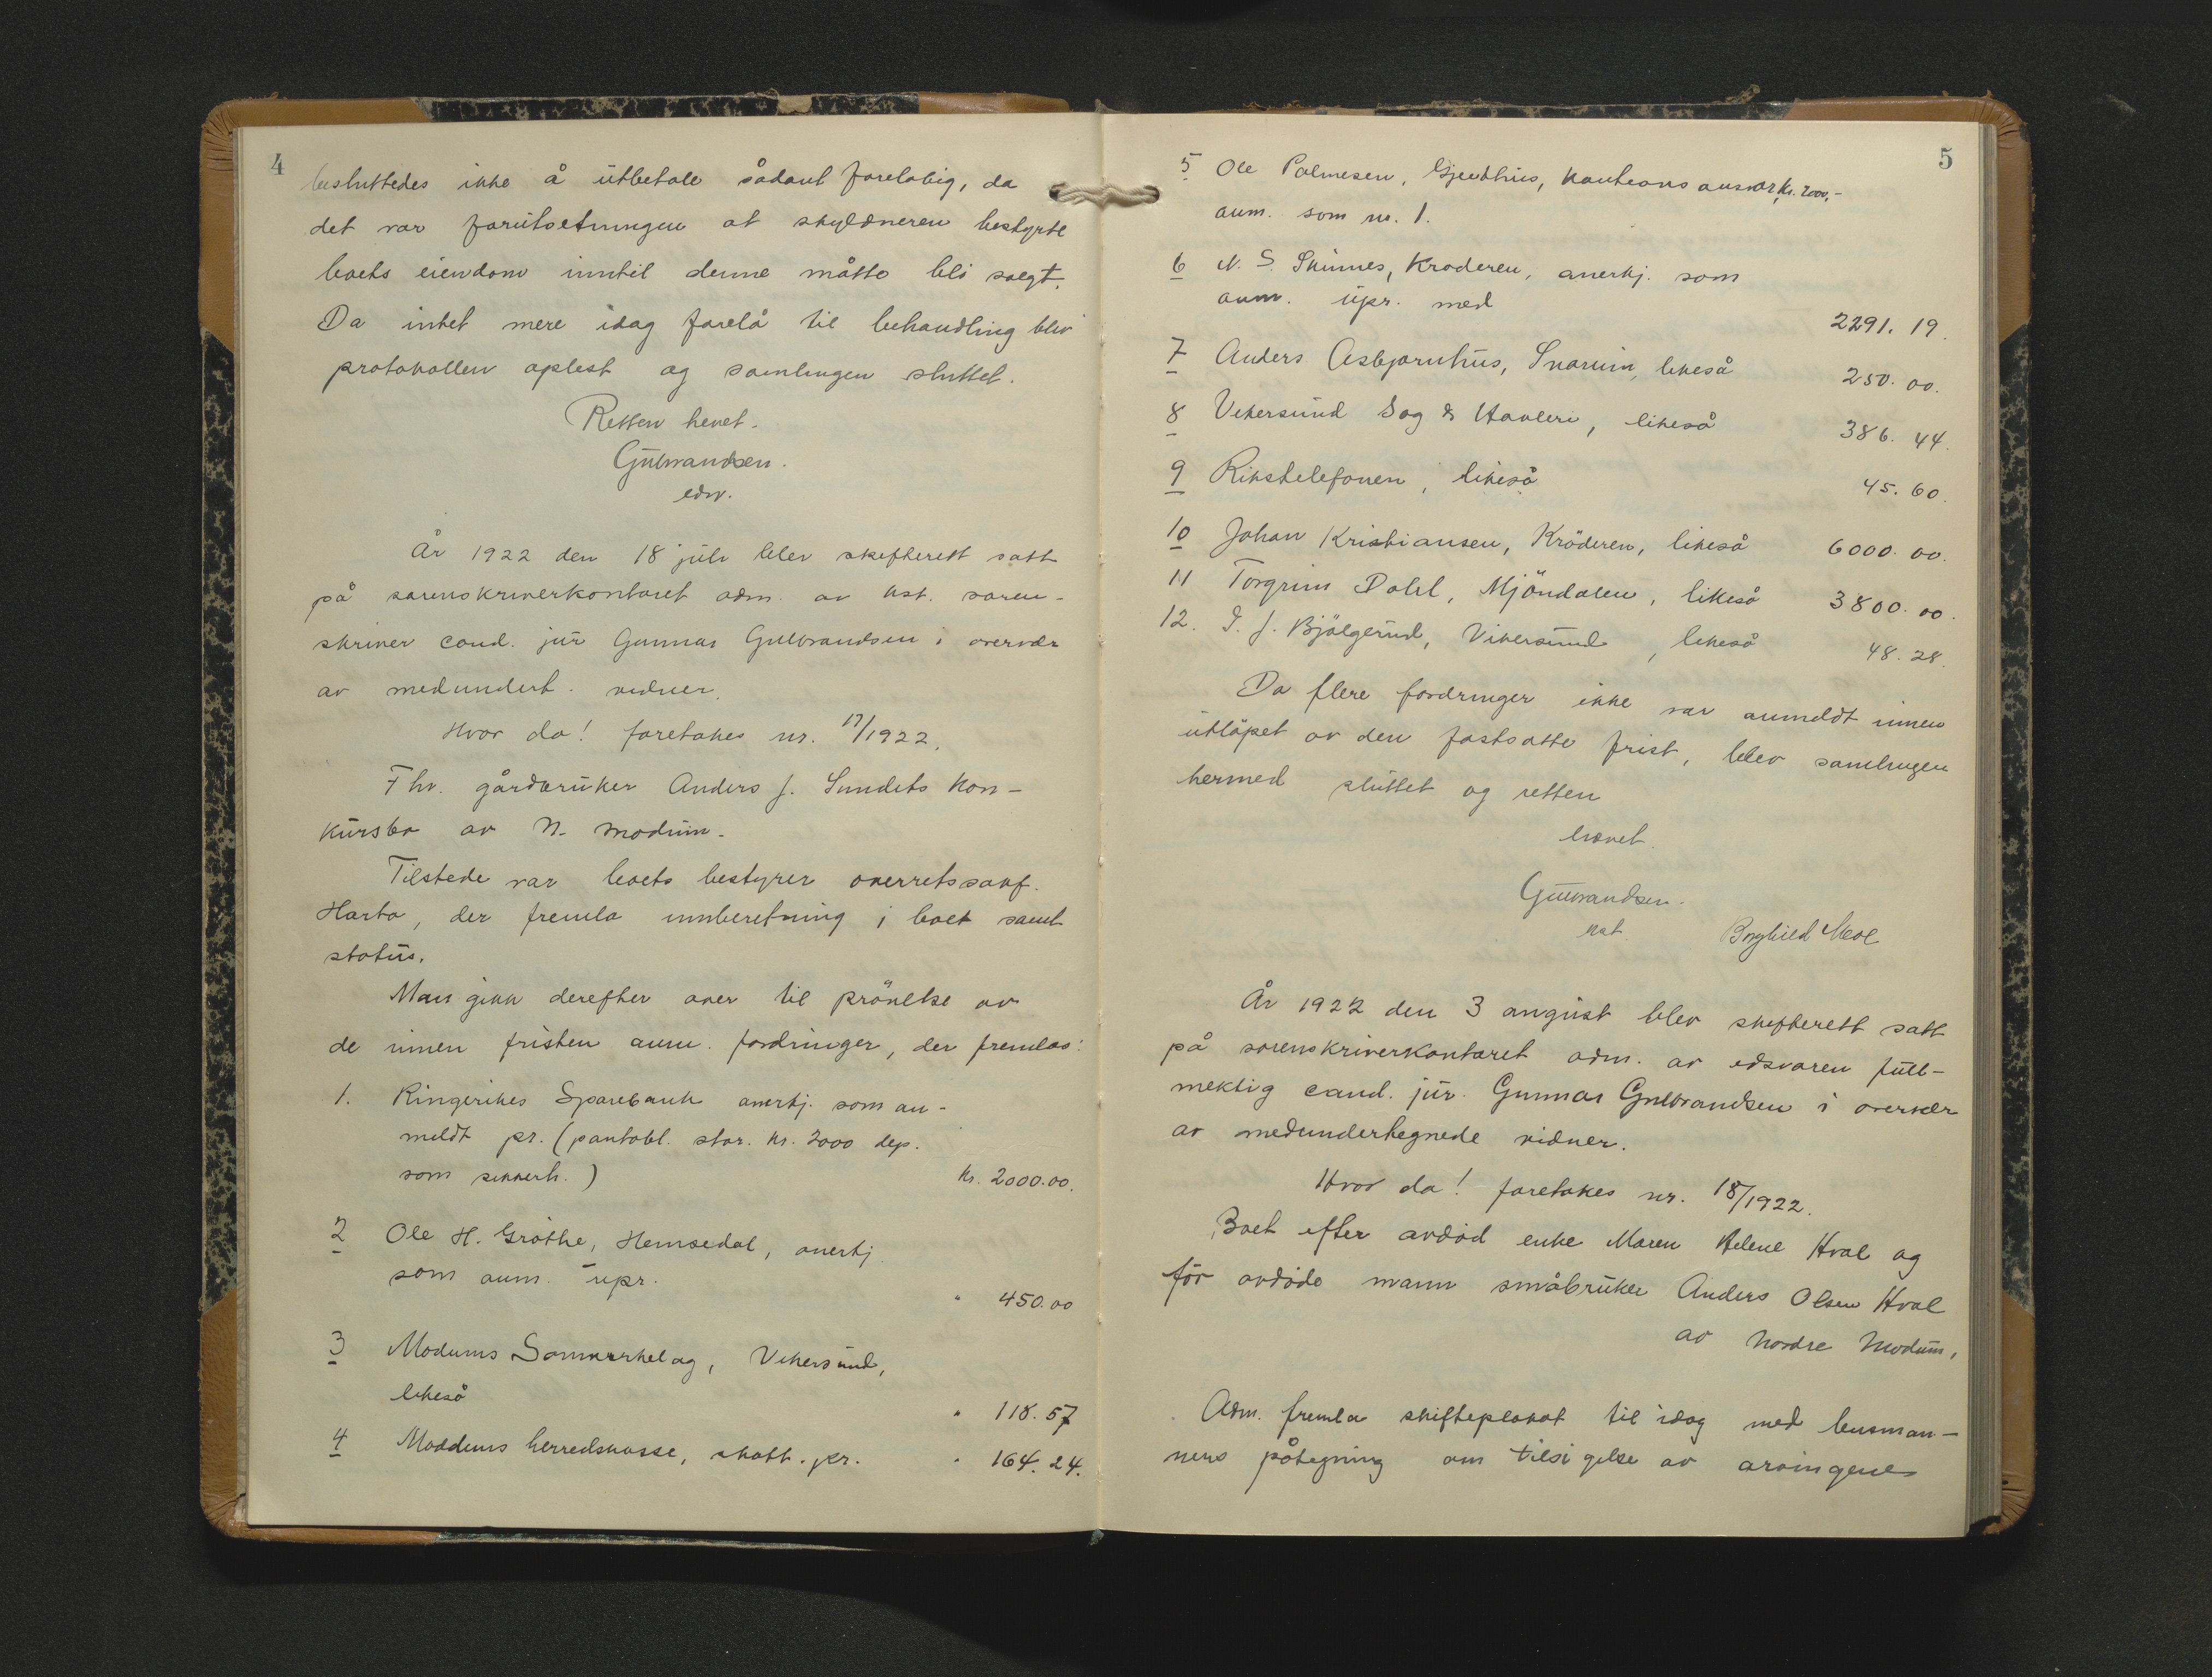 4
besluttedes ikke å utbetale sådant foreløbig, da
det var forutsetningen at skyldneren bestyrte
boets eiendom inntil denne måtte bli solgt.
Da intet mere idag forelå til behandling blev
protokollen oplest og samlingen sluttet.
Retten hevet.
Gulbrandsen.
edsv.
År 1922 den 18 juli blev skifterett satt
på sorenskriverkontoret adm. av kst. soren-
skriver cand. jur Gunnar Gulbrandsen i overvær
av medundert. vidner.
Hvor da! foretokes nr. 17/1922.
Fhv. gårdbruker Anders J. Sundets kon-
kursbo av N. Modum.
Tilstede var boets bestyrer overretssakf.
Harbo, der fremla innberetning i boet samt
status.
Man gikk derefter over til prövelse av
de innen fristen anm. fordringer, der fremlas:
1. Ringerikes Sparebank anerkj. som an-
meldt pr. (pantobl. stor. kr. 2000 dep.
som sikkerh.) Kr. 2000.00.
2 Ole H. Gröthe, Hemsedal, anerkj
som anm. upr. " 450.00
3 Modums Samvirkelag, Vikersund,
likeså " 118.57
4 Modums herredskasse, skatt. pr. " 164.24.
5
5 Ole Palmesen, Gjeithus, kautions ansvar kr. 2000,-
anm. som nr. 1.
6 N. S. Skinnes, Kröderen, anerkj. som
anm. upr. med 2291.19.
7 Anders Asbjørnhus, Snarum, likeså 250.00.
8 Vikersund Sag & Høvleri, likeså 386.44.
9 Rikstelefonen, likeså 45.60.
10 Johan Kristiansen, Kröderen, likeså 6000.00.
11 Torgrim Dahl, Mjöndalen, likeså 3800.00.
12. I. J. Bjölgerud, Vikersund, likeså 48.28.
Da flere fordringer ikke var anmeldt innen
utløpet av den fastsatte frist, blev samlingen
hermed sluttet og retten
hævet.
Gulbrandsen.
kst. Borghild Moe
År 1922 den 3 august blev skifterett satt
på sorenskriverkontoret adm. av edsvoren full-
mektig cand. jur. Gunnar Gulbrandsen i overvær
av medundertegnede vidner.
Hvor da! foretokes nr. 18/1922.
Boet efter avdöd enke Maren Helene Hval og
för avdöde mann småbruker Anders Olsen Hval
av Nordre Modum.
Adm. fremla skifteplakat til idag med lensman-
nens påtegning om tilsigelse av arvingene